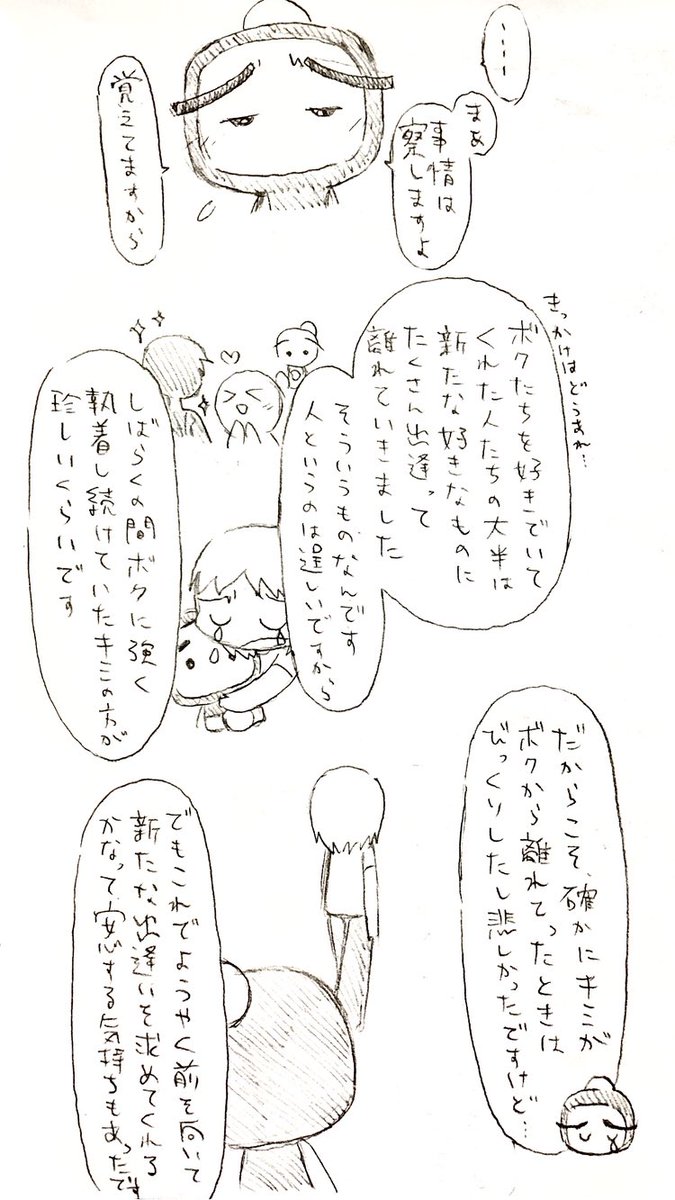 …‥
まあ
事情は
察しますよ
覚えてますから
きっかけはどうあれ…
ボクたちを好きでいて
くれた人たちの大半は
新たな好きなものに
たくさん出逢って
離れていきました
そういうものなんです
人というのは逞しいですから
しばらくの間ボクに強く
執着し続けていたキミの方が
珍しいくらいです
だからこそ、確かにキミが
ボクから離れてったときは
びっくりしたし悲しかったですけど…
でもこれでようやく前を向いて
新たな出逢いを求めてくれる
かなって、安心する気持ちもあったです